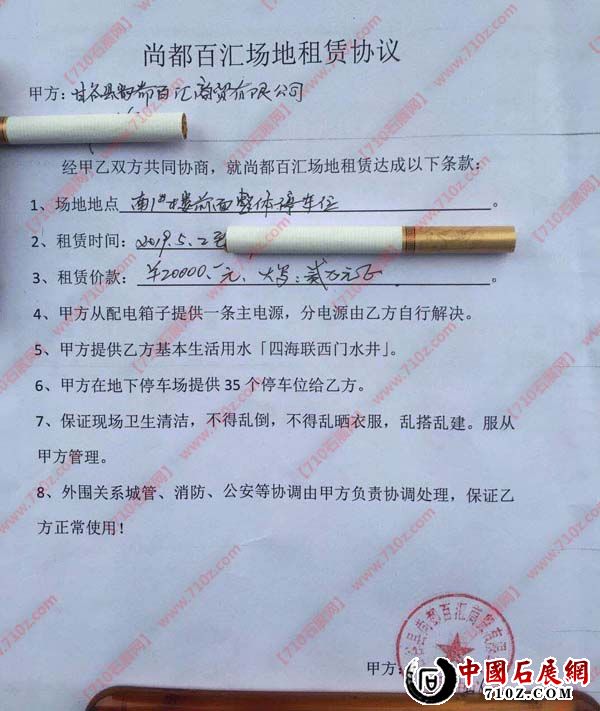 尚都百汇场地租赁协议
甲方：甘谷县尚都百汇商贸有限公司
经甲乙双方共同协商，就尚都百汇场地租赁达成以下条款：
1、场地地点 南1#楼前面整体停车位。
2、租赁时间：2019.5.2至
3、租赁价款：¥20000.元、大写：贰万元正。
4、甲方从配电箱子提供一条主电源，分电源由乙方自行解决。
5、甲方提供乙方基本生活用水「四海联西门水井」。
6、甲方在地下停车场提供 35 个停车位给乙方。
7、保证现场卫生清洁，不得乱倒，不得乱晒衣服，乱搭乱建。服从
甲方管理。
8、外围关系城管、消防、公安等协调由甲方负责协调处理，保证乙
方正常使用！
县尚都百汇商贸有限
甲方：
中国石展網
710Z.COM
【710石展网】www.710z.com